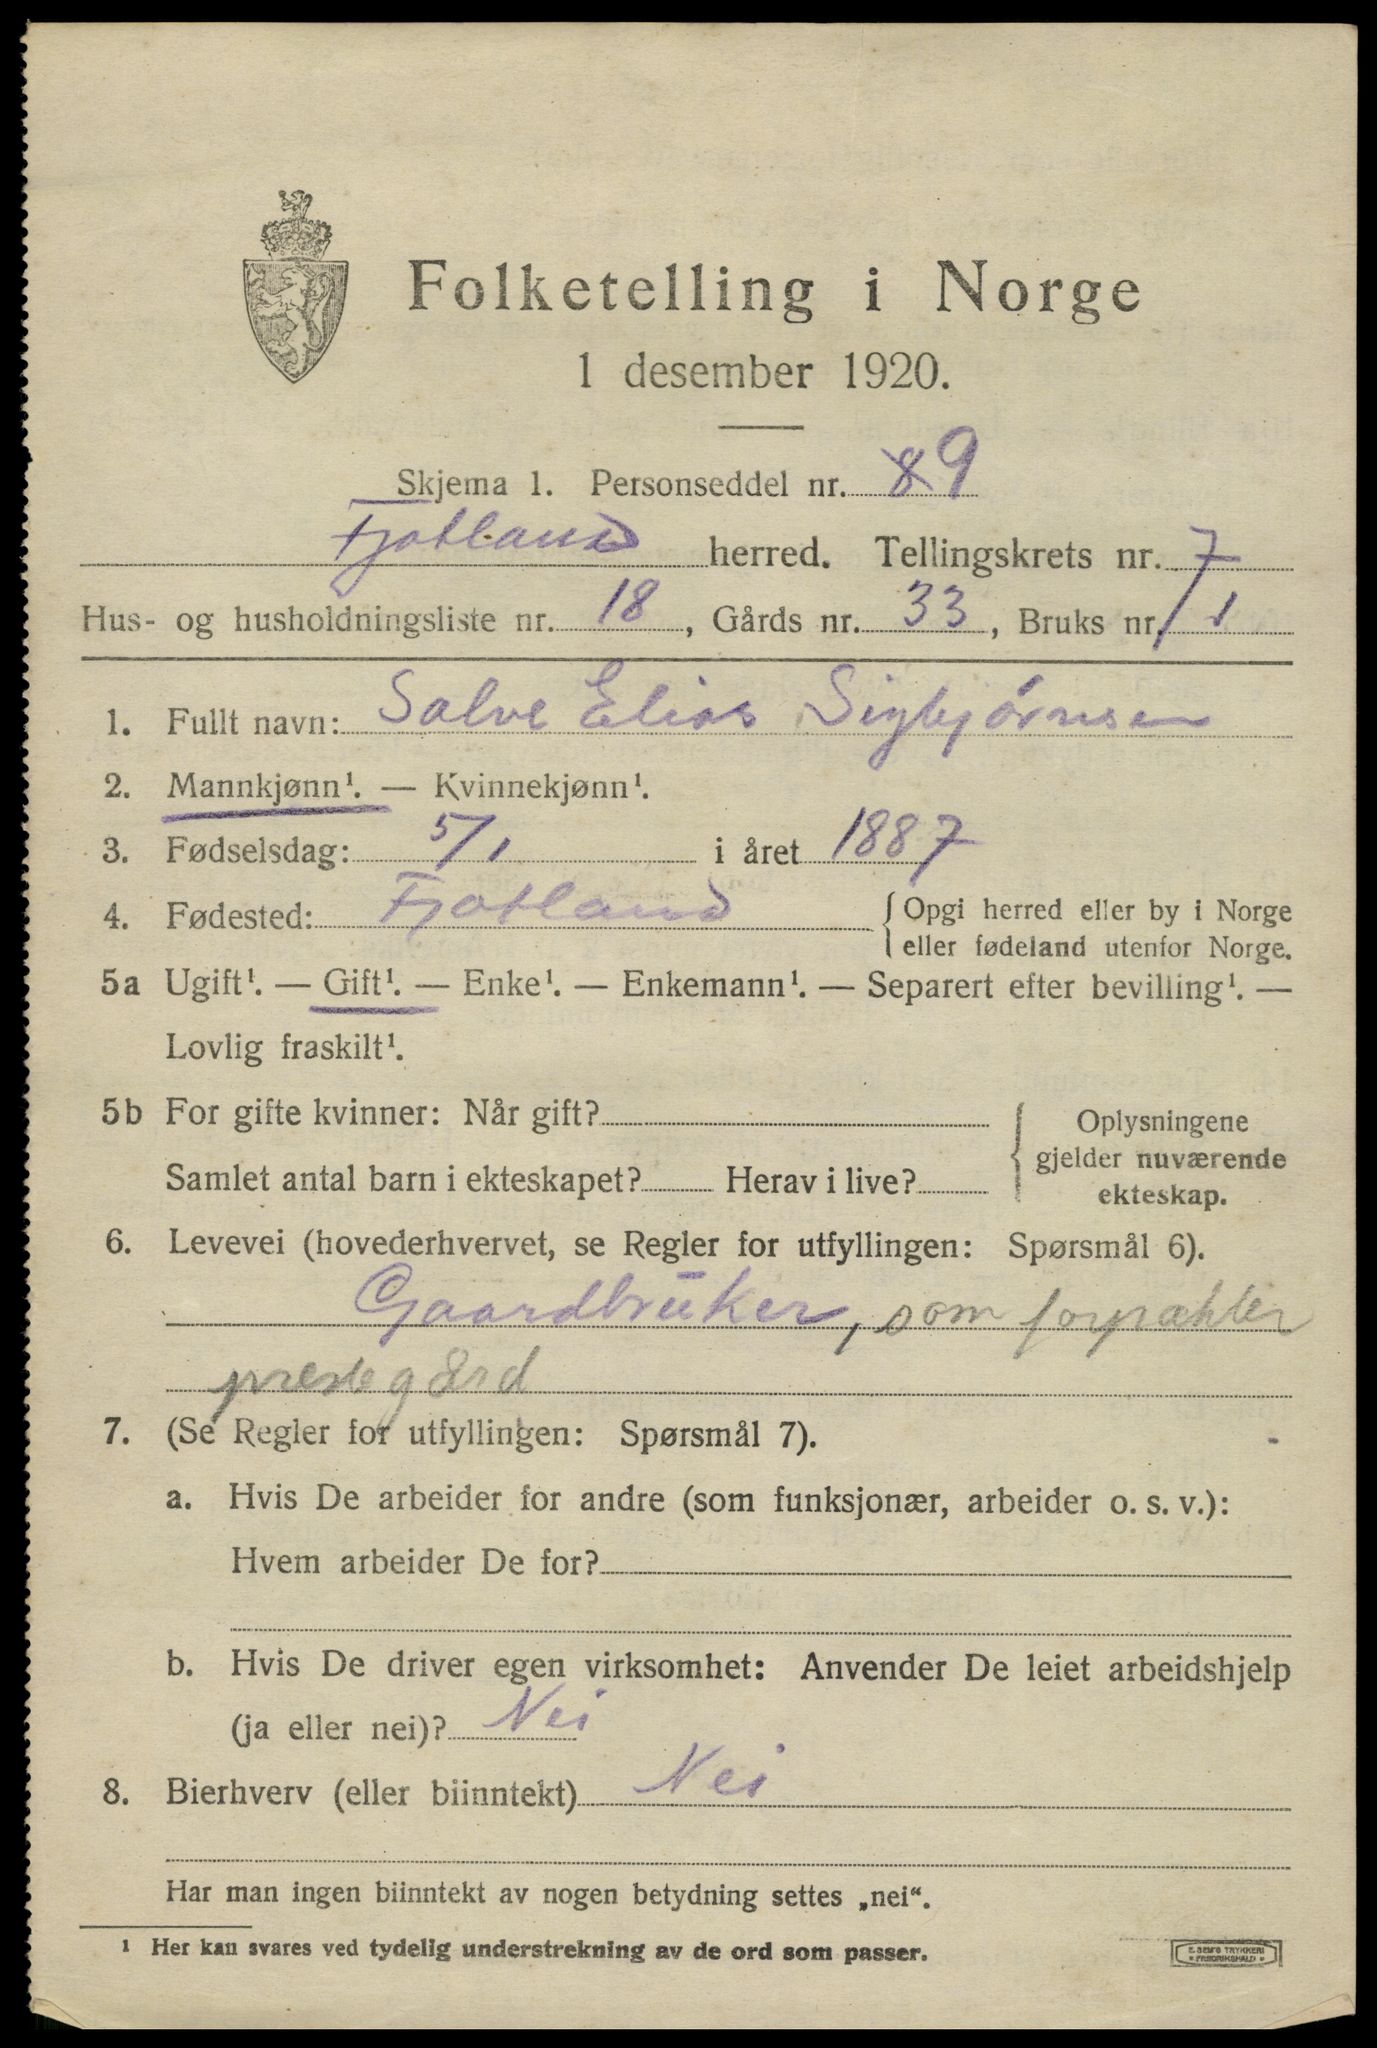 Folketelling i Norge
1 desember 1920.
Skjema 1. Personseddel nr. 8 9
Fjotland herred. Tellingskrets nr. 7
Hus- og husholdningsliste nr. 18, Gårds nr. 33, Bruks nr. 1
1. Fullt navn: Salve Elias Sigbjørnsen
2. Mannkjønn¹. — Kvinnekjønn¹.
3. Fødselsdag: 5/1 i året 1887
4. Fødested: Fjotland { Opgi herred eller by i Norge
eller fødeland utenfor Norge.
5a Ugift¹. — Gift¹. — Enke¹. — Enkemann¹. — Separert efter bevilling¹. —
Lovlig fraskilt¹.
5b For gifte kvinner: Når gift? { Oplysningene
gjelder nuværende
Samlet antal barn i ekteskapet? Herav i live? ekteskap.
6. Levevei (hovederhvervet, se Regler for utfyllingen: Spørsmål 6).
Gaardbruker, som forpakter
prestegård
7. (Se Regler for utfyllingen: Spørsmål 7).
a. Hvis De arbeider for andre (som funksjonær, arbeider o. s. v.):
Hvem arbeider De for?
b. Hvis De driver egen virksomhet: Anvender De leiet arbeidshjelp
(ja eller nei)? Nei
8. Bierhverv (eller biinntekt) Nei
Har man ingen biinntekt av nogen betydning settes „nei“.
¹ Her kan svares ved tydelig understrekning av de ord som passer.
E. SEM'S TRYKKERI
* FREDRIKSHALD *